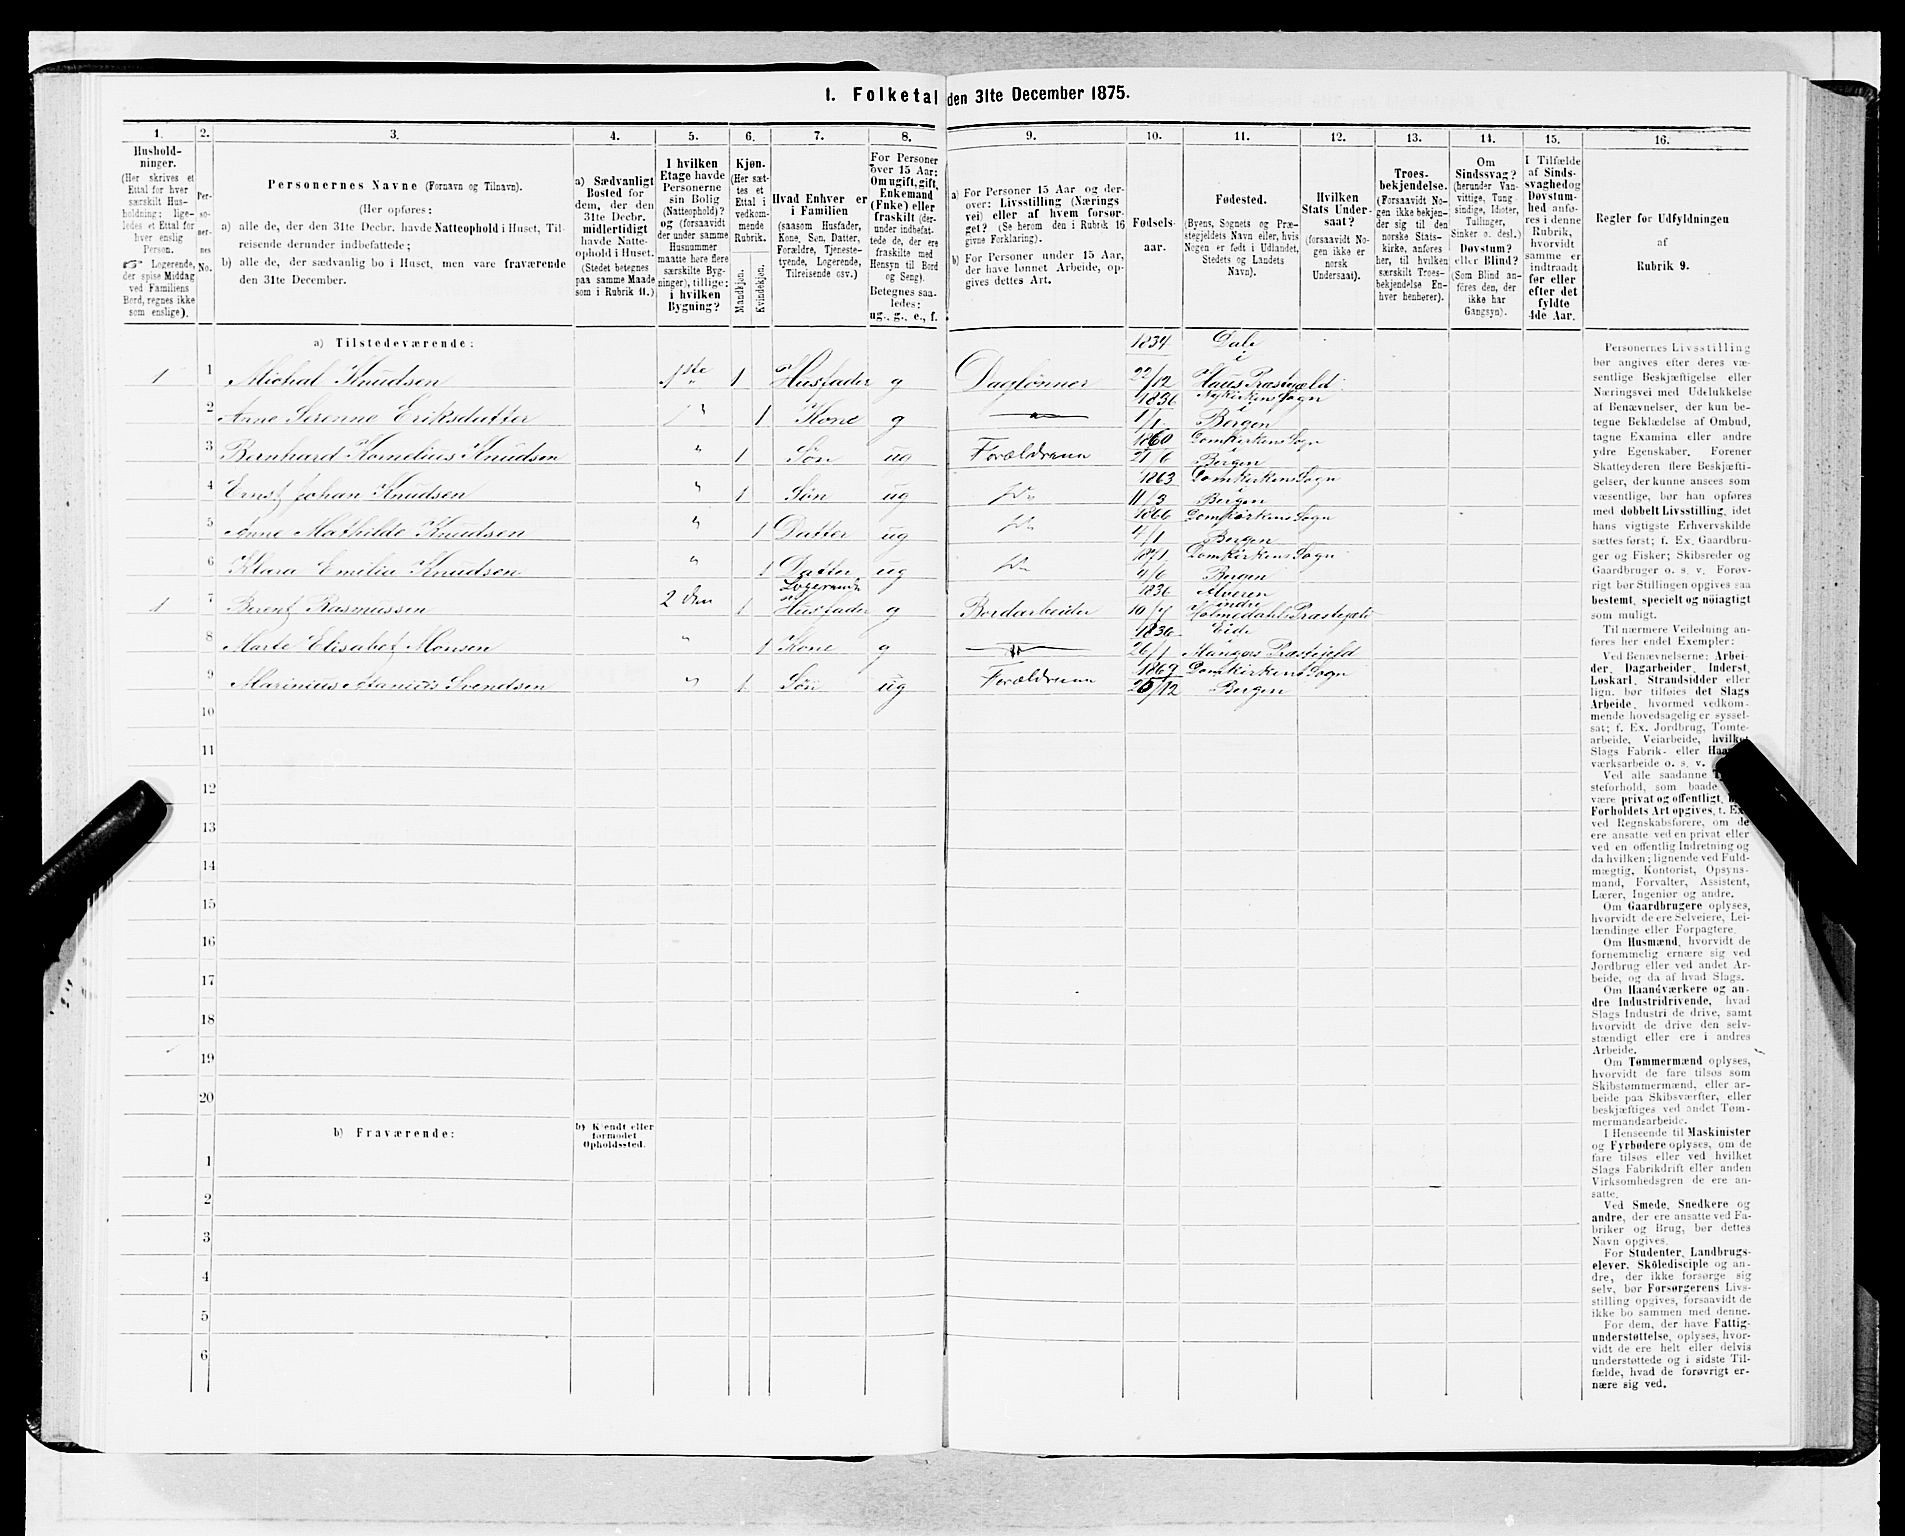 1. Folketal den 31te December 1875.
1. 2. 3. 4. 5. 6. 7. 8. 9. 10. 11. 12. 13. 14. 15. 16.
Hushold-
ninger.
(Her skrives et
Ettal for hver
særskilt Hus-
holdning; lige-
ledes et Ettal for
hver enslig
Person.
☞ Logerende,
der spise Middag
ved Familiens
Bord, regnes ikke
som enslige).
Per-
so-
ner-
nes
No.
Personernes Navne (Fornavn og Tilnavn).
(Her opføres:
a) alle de, der den 31te Decbr. havde Natteophold i Huset, Til-
reisende derunder indbefattede;
b) alle de, der sædvanlig bo i Huset, men vare fraværende
den 31te December.
a) Sædvanligt
Bosted for
dem, der den
31te Decbr.
midlertidigt
havde Natte-
ophold i Huset.
(Stedet betegnes
paa samme Maade
som i Rubrik 11.)
I hvilken
Etage havde
Personerne
sin Bolig
(Natteophold)?
og (forsaavidt
der under samme
Husnummer
maatte høre flere
særskilte Byg-
ninger), tillige:
i hvilken
Bygning?
Kjøn.
(Her sæt-
tes et
Ettal i
vedkom-
mende
Rubrik.
Mandkjøn.
Kvindekjøn.
Hvad Enhver er
i Familien
(saasom Husfader,
Kone, Søn, Datter,
Forældre, Tjeneste-
tyende, Logerende,
Tilreisende osv.)
For Personer
over 15 Aar:
Om ugift, gift,
Enkemand
(Enke) eller
fraskilt (der-
under indbefat-
tede de, der ere
fraskilte med
Hensyn til Bord
og Seng).
Betegnes saa-
ledes:
ug., g., e., f.
a) For Personer 15 Aar og der-
over: Livsstilling (Nærings
vei) eller af hvem forsør-
get? (Se herom den i Rubrik 16
givne Forklaring).
b) For Personer under 15 Aar,
der have lønnet Arbeide, op-
gives dettes Art.
Fødsels-
aar.
Fødested.
(Byens, Sognets og Præ-
stegjeldets Navn eller, hvis
Nogen er født i Udlandet,
Stedets og Landets
Navn).
Hvilken
Stats Under-
saat?
(forsaavidt No-
gen ikke er
norsk
Undersaat).
Troes-
bekjendelse.
(Forsaavidt No-
gen ikke bekjen-
der sig til den
norske Stats-
kirke, anføres
her, til hvilken
særskilt Troes-
bekjendelse En-
hver henhører).
Om
Sindssvag?
(herunder Van-
vittige, Tung-
sindige, Idioter,
Tullinger,
Sinker o. desl.)
Døvstum?
eller Blind?
(Som Blind an-
føres den, der
ikke har
Gangsyn).
I Tilfælde
af Sinds-
svaghed og
Døvstum-
hed anfø-
res i denne
Rubrik,
hvorvidt
samme er
indtraadt
før eller
efter det
fyldte
4de Aar.
Regler for Udfyldningen
af
Rubrik 9.
a) Tilstedeværende:
1 1 Michal Knudsen 1ste 1 Husfader g Daglønner 1834 22/12 Dale i Haus Præstegjeld
2 Anne Serenne Eriksdatter " 1 Kone g 1836 1/1 Nykirkens Sogn i Bergen
3 Bernhard Kornelius Knudsen " 1 Søn ug Forældrene 1860 21/6 Domkirkens Sogn i Bergen
4 Ernst Johan Knudsen " 1 Søn ug Do 1863 11/3 Domkirkens Sogn i Bergen
5 Anne Mathilde Knudsen " 1 Datter ug Do 1866 4/1 Domkirkens Sogn Bergen
6 Klara Emilia Knudsen " 1 Datter ug Do 1871 4/6 Domkirkens Sogn Bergen
1 7 Berent Rasmussen 2den 1 Logerende Husfader g Bordarbeider 1836 10/7 Alveren indre Holmedahls Præstegjeld
8 Marte Elisabet Monsen " 1 Kone g " 1836 26/1 Eide Manger Præstegjeld
9 Marinius Svendsen " 1 Søn ug Forældrene 1869 25/12 Domkirkens Sogn Bergen
10
11
12
13
14
15
16
17
18
19
20
b) Fraværende: b) Kjendt eller
formodet
Opholdssted.
1
2
3
4
5
6
Personernes Livsstilling
bør angives efter deres væ-
sentlige Beskjæftigelse eller
Næringsvei med Udelukkelse
af Benævnelser, der kun be-
tegne Beklædelse af Ombud,
tagne Examina eller andre
ydre Egenskaber. Forener
Skatteyderen flere Beskjæfti-
gelser, der kunne ansees som
væsentlige, bør han opføres
med dobbelt Livsstilling, idet
hans vigtigste Erhvervskilde
sættes først; f. Ex. Gaardbru-
ger og Fisker; Skibsreder og
Gaardbruger o. s. v. Forøv-
rigt bør Stillingen opgives saa
bestemt, specielt og nöiagtigt
som muligt.
Til nærmere Veiledning an-
føres her endel Exempler:
Ved Benævnelserne: Arbei-
der, Dagarbeider, Inderst,
Løskarl, Strandsidder eller
lign. bør tilføies det Slags
Arbeide, hvormed vedkom-
mende hovedsagelig er syssel-
sat; f. Ex. Jordbrug, Tomte-
arbeide, Veiarbeide, hvilket
Slags Fabrik- eller
værksarbeide o. s. v.
Ved alle saadanne
steforhold, som baade
være privat og offentligt,
Forholdets Art opgives, f. Ex.
ved Regnskabsførere, om de
ere ansatte ved en privat eller
ved en offentlig Indretning og
da hvilken; lignende ved Fuld-
mægtig, Kontorist, Opsyns-
mand, Forvalter, Assistent,
Lærer, Ingeniør og andre.
Om Gaardbrugere oplyses,
hvorvidt de ere Selveiere, Lei-
lændinge eller Forpagtere.
Om Husmænd, hvorvidt de
fornemmelig ernære sig ved
Jordbrug eller ved andet Ar-
beide, og da af hvad Slags.
Om Haandværkere og an-
dre Industridrivende, hvad
Slags Industri de drive, samt
hvorvidt de drive den selv-
stændigt eller ere i andres
Arbeide.
Om Tømmermænd oplyses,
hvorvidt de fare tilsøs som
Skibstømmermænd, eller ar-
beide paa Skibsværfter, eller
beskjæftiges ved andet Tøm-
mermandsarbeide.
I Henseende til Maskinister
og Fyrbødere oplyses, om de
fare tilsøs eller ved hvilket
Slags Fabrikdrift eller anden
Virksomhedsgren de ere an-
satte.
Ved Smede, Snedkere og
andre, der ere ansatte ved Fa-
briker og Brug, bør dettes
Navn opgives.
For Studenter, Landbrugs-
elever, Skôledisciple og an-
dre, der ikke forsørge sig
selv, bør Forsørgerens Livs-
stilling opgives, forsaavidt de
ikke bo sammen med denne.
For dem, der have Fattig-
understøttelse, oplyses, hvor-
vidt de ere helt eller delvis
understøttede og i sidste Til-
fælde, hvad de forøvrigt er-
nære sig ved.